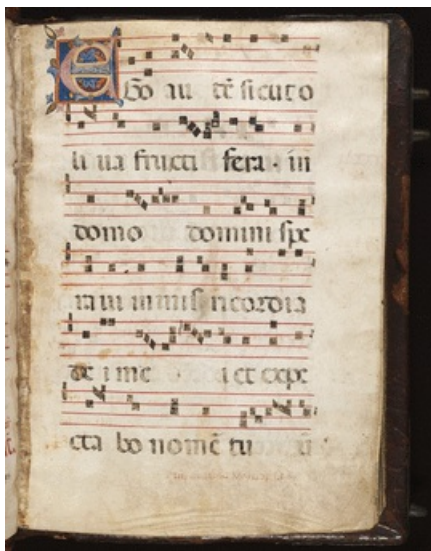 Ego au tē sicut o
li ua fructi fera in
domo domini spe
raui in mis ricordia
de i me i et expe
cta bo nomē tu